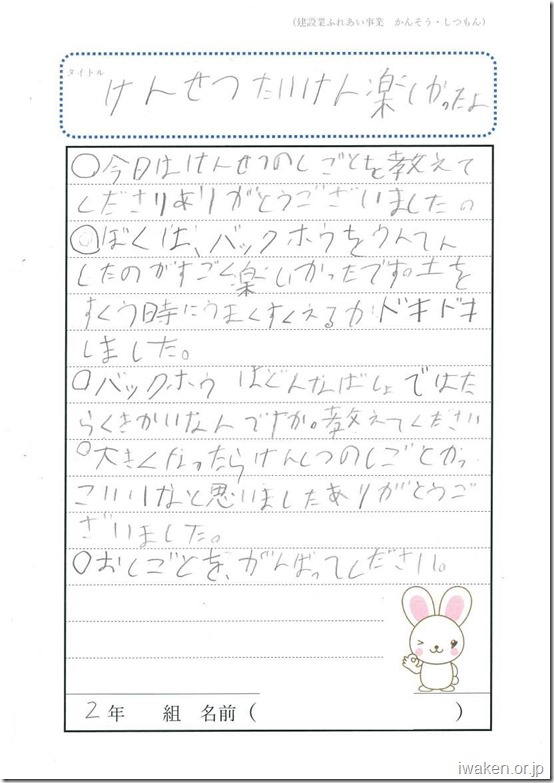 （建設業ふれあい事業　かんそう・しつもん）
タイトル
けんせつたいけん楽しかったよ
○今日はけんせつのしごとを教えて
しださりありがとうございました。
○ぼくは、バックホウをうんてん
したのがすごく楽しかったです。土を
すくう時にうまくすくえるかドキドキ
しました。
○バックホウはどんなばしょではた
らくきかいなんですか。教えてください
○大きくなったらけんしつのしごとかっ
こいいなと思いましたありがとうご
ざいました。
○おしごとを、がんばってください。
2年　組　名前（　）
iwaken.or.jp